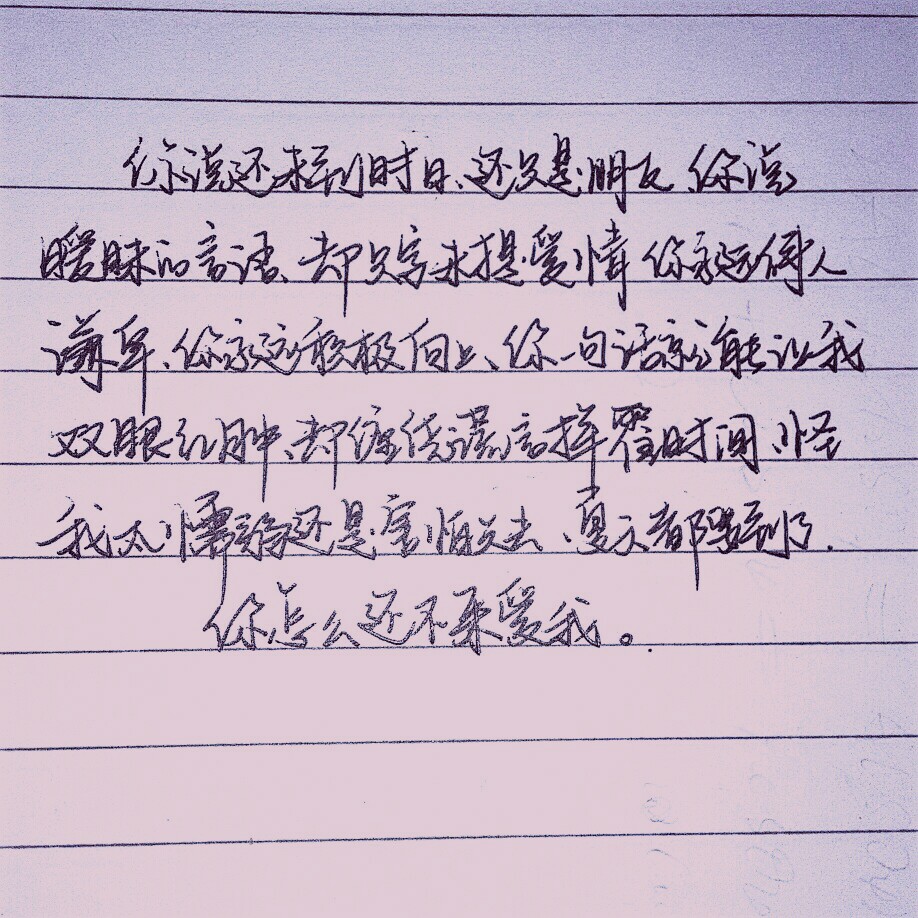 你说还未到时日、还只是朋友 你说
暧昧的言语、却只字未提爱情 你永远待人
谦卑、你永远积极向上、你一句话就能让我
双眼红肿、却凭谎言挥霍时间、怪
我太懦弱还是害怕失去、夏天都要到了.
你怎么还不来爱我。